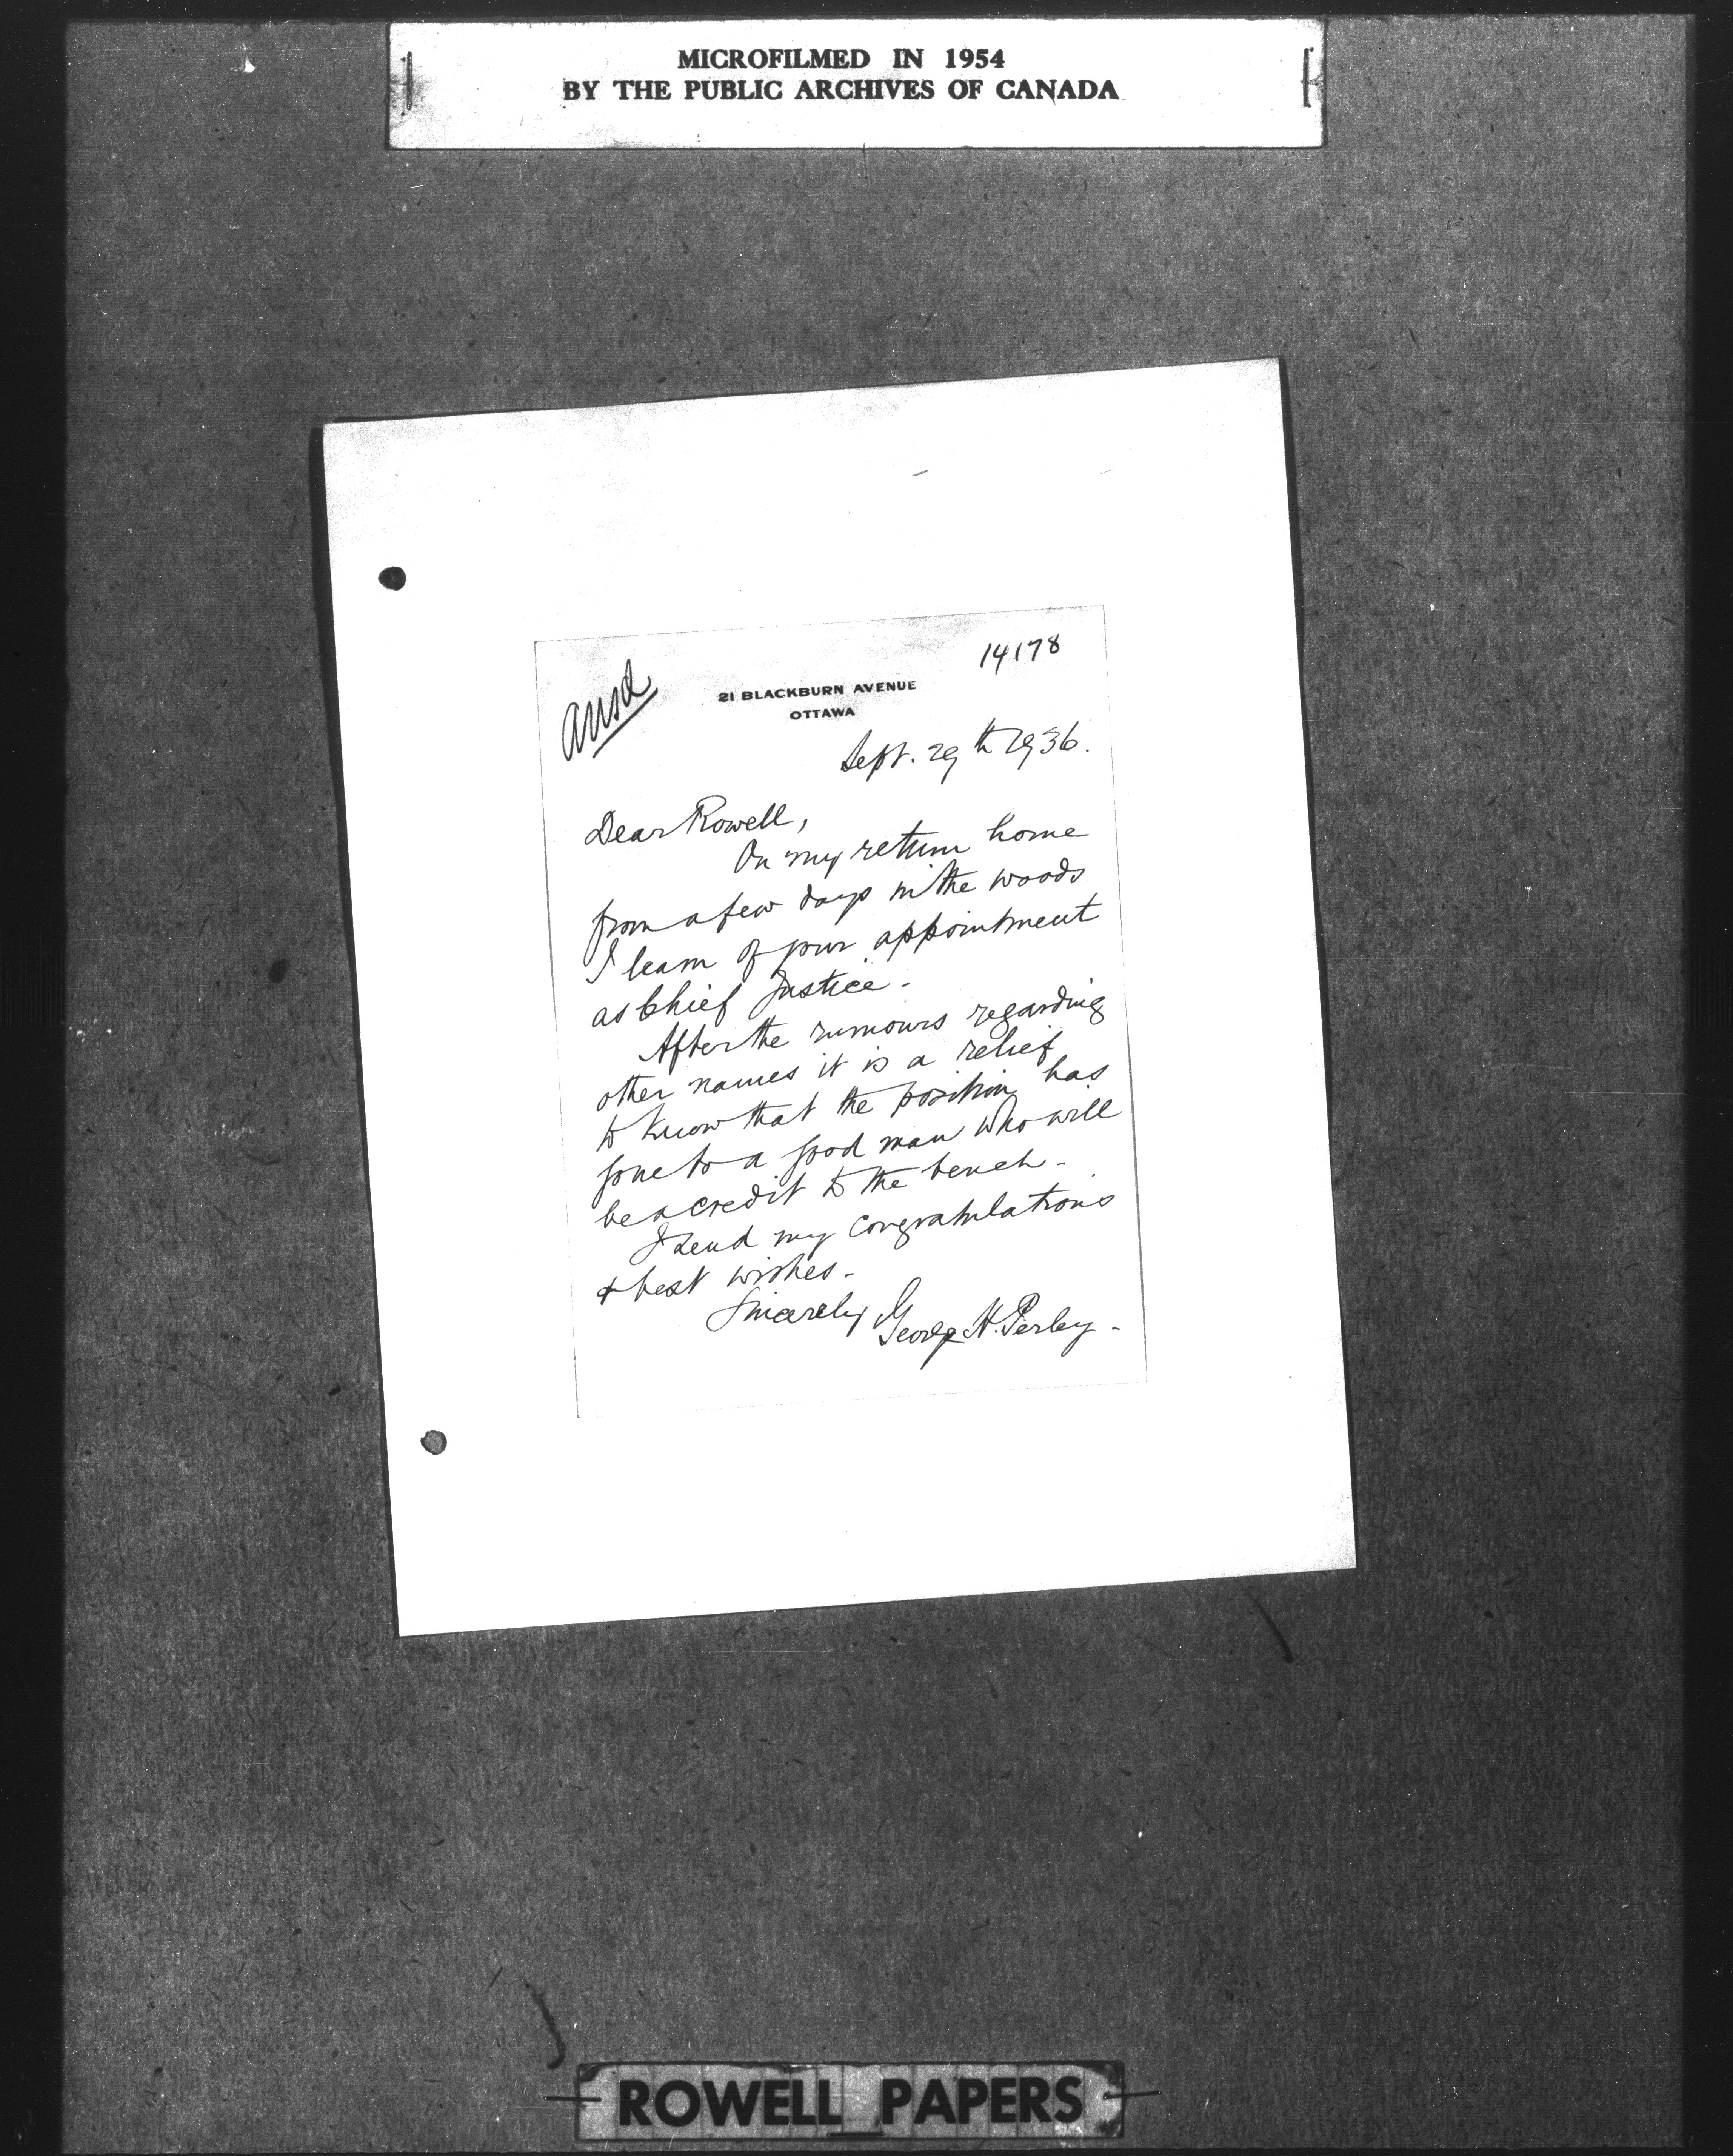 MICROFILMED IN 1954
BY THE PUBLIC ARCHIVES OF CANADA
14178
ansd
21 BLACKBURN AVENUE
OTTAWA
Sept. 29th 1936.
Dear Rowell,
On my return home
from a few days in the woods
I learn of your appointment
as Chief Justice.
After the rumours regarding
other names it is a relief
to know that the position has
gone to a good man who will
be a credit to the bench -
I send my congratulations
& best wishes -
Sincerely George H. Perley -
ROWELL PAPERS